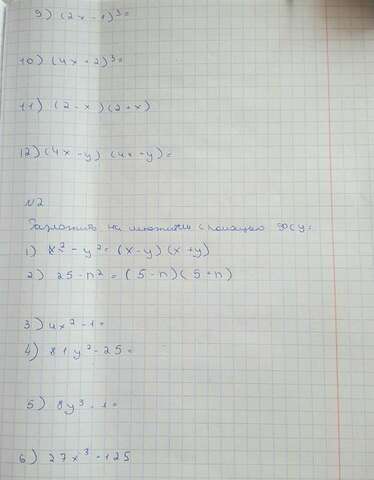 9) (2x - 1)³ =
10) (4x + 2)³ =
11) (2 - x) (2 + x)
12) (4x - y) (4x + y) =
№2
Разложить на множители с помощью ФСУ:
1) x² - y² = (x - y) (x + y)
2) 25 - n² = (5 - n) (5 + n)
3) 4x² - 1 =
4) 81y² - 25 =
5) 8y³ - 1 =
6) 27x³ - 125